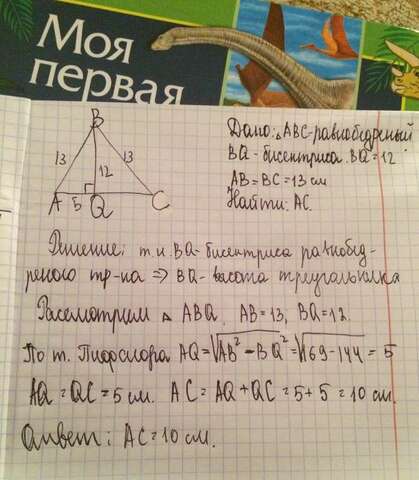 Моя
первая
B
13
12
13
A
5
Q
C
Дано: △ABC-равнобедреный
BQ-бисектриса. BQ=12
AB=BC=13 см
Найти: AC.
Решение: т.к BQ-бисектриса равнобед-
реного тр-ка => BQ-высота треугольника
Рассмотрим △ ABQ. AB=13, BQ=12.
По т. Пифагора AQ=√AB²-BQ²=√169-144=5
AQ=QC=5 см. AC=AQ+QC=5+5=10 см.
Ответ: AC=10 см.